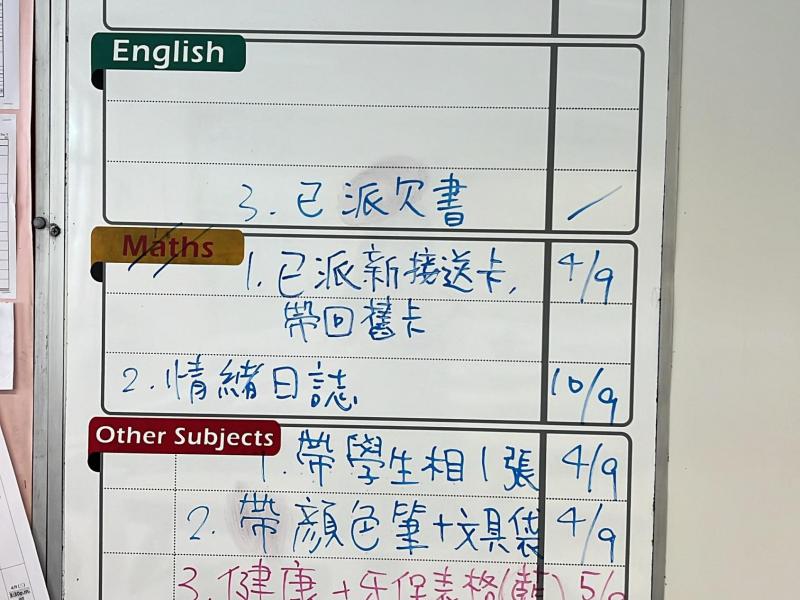 English
3. 已派欠書 /
Maths
1. 已派新接送卡, 4/9
帶回舊卡
2. 情緒日誌 10/9
Other Subjects
1. 帶學生相1張 4/9
2. 帶顏色筆+文具袋 4/9
3. 健康+牙保表格(藍) 5/9